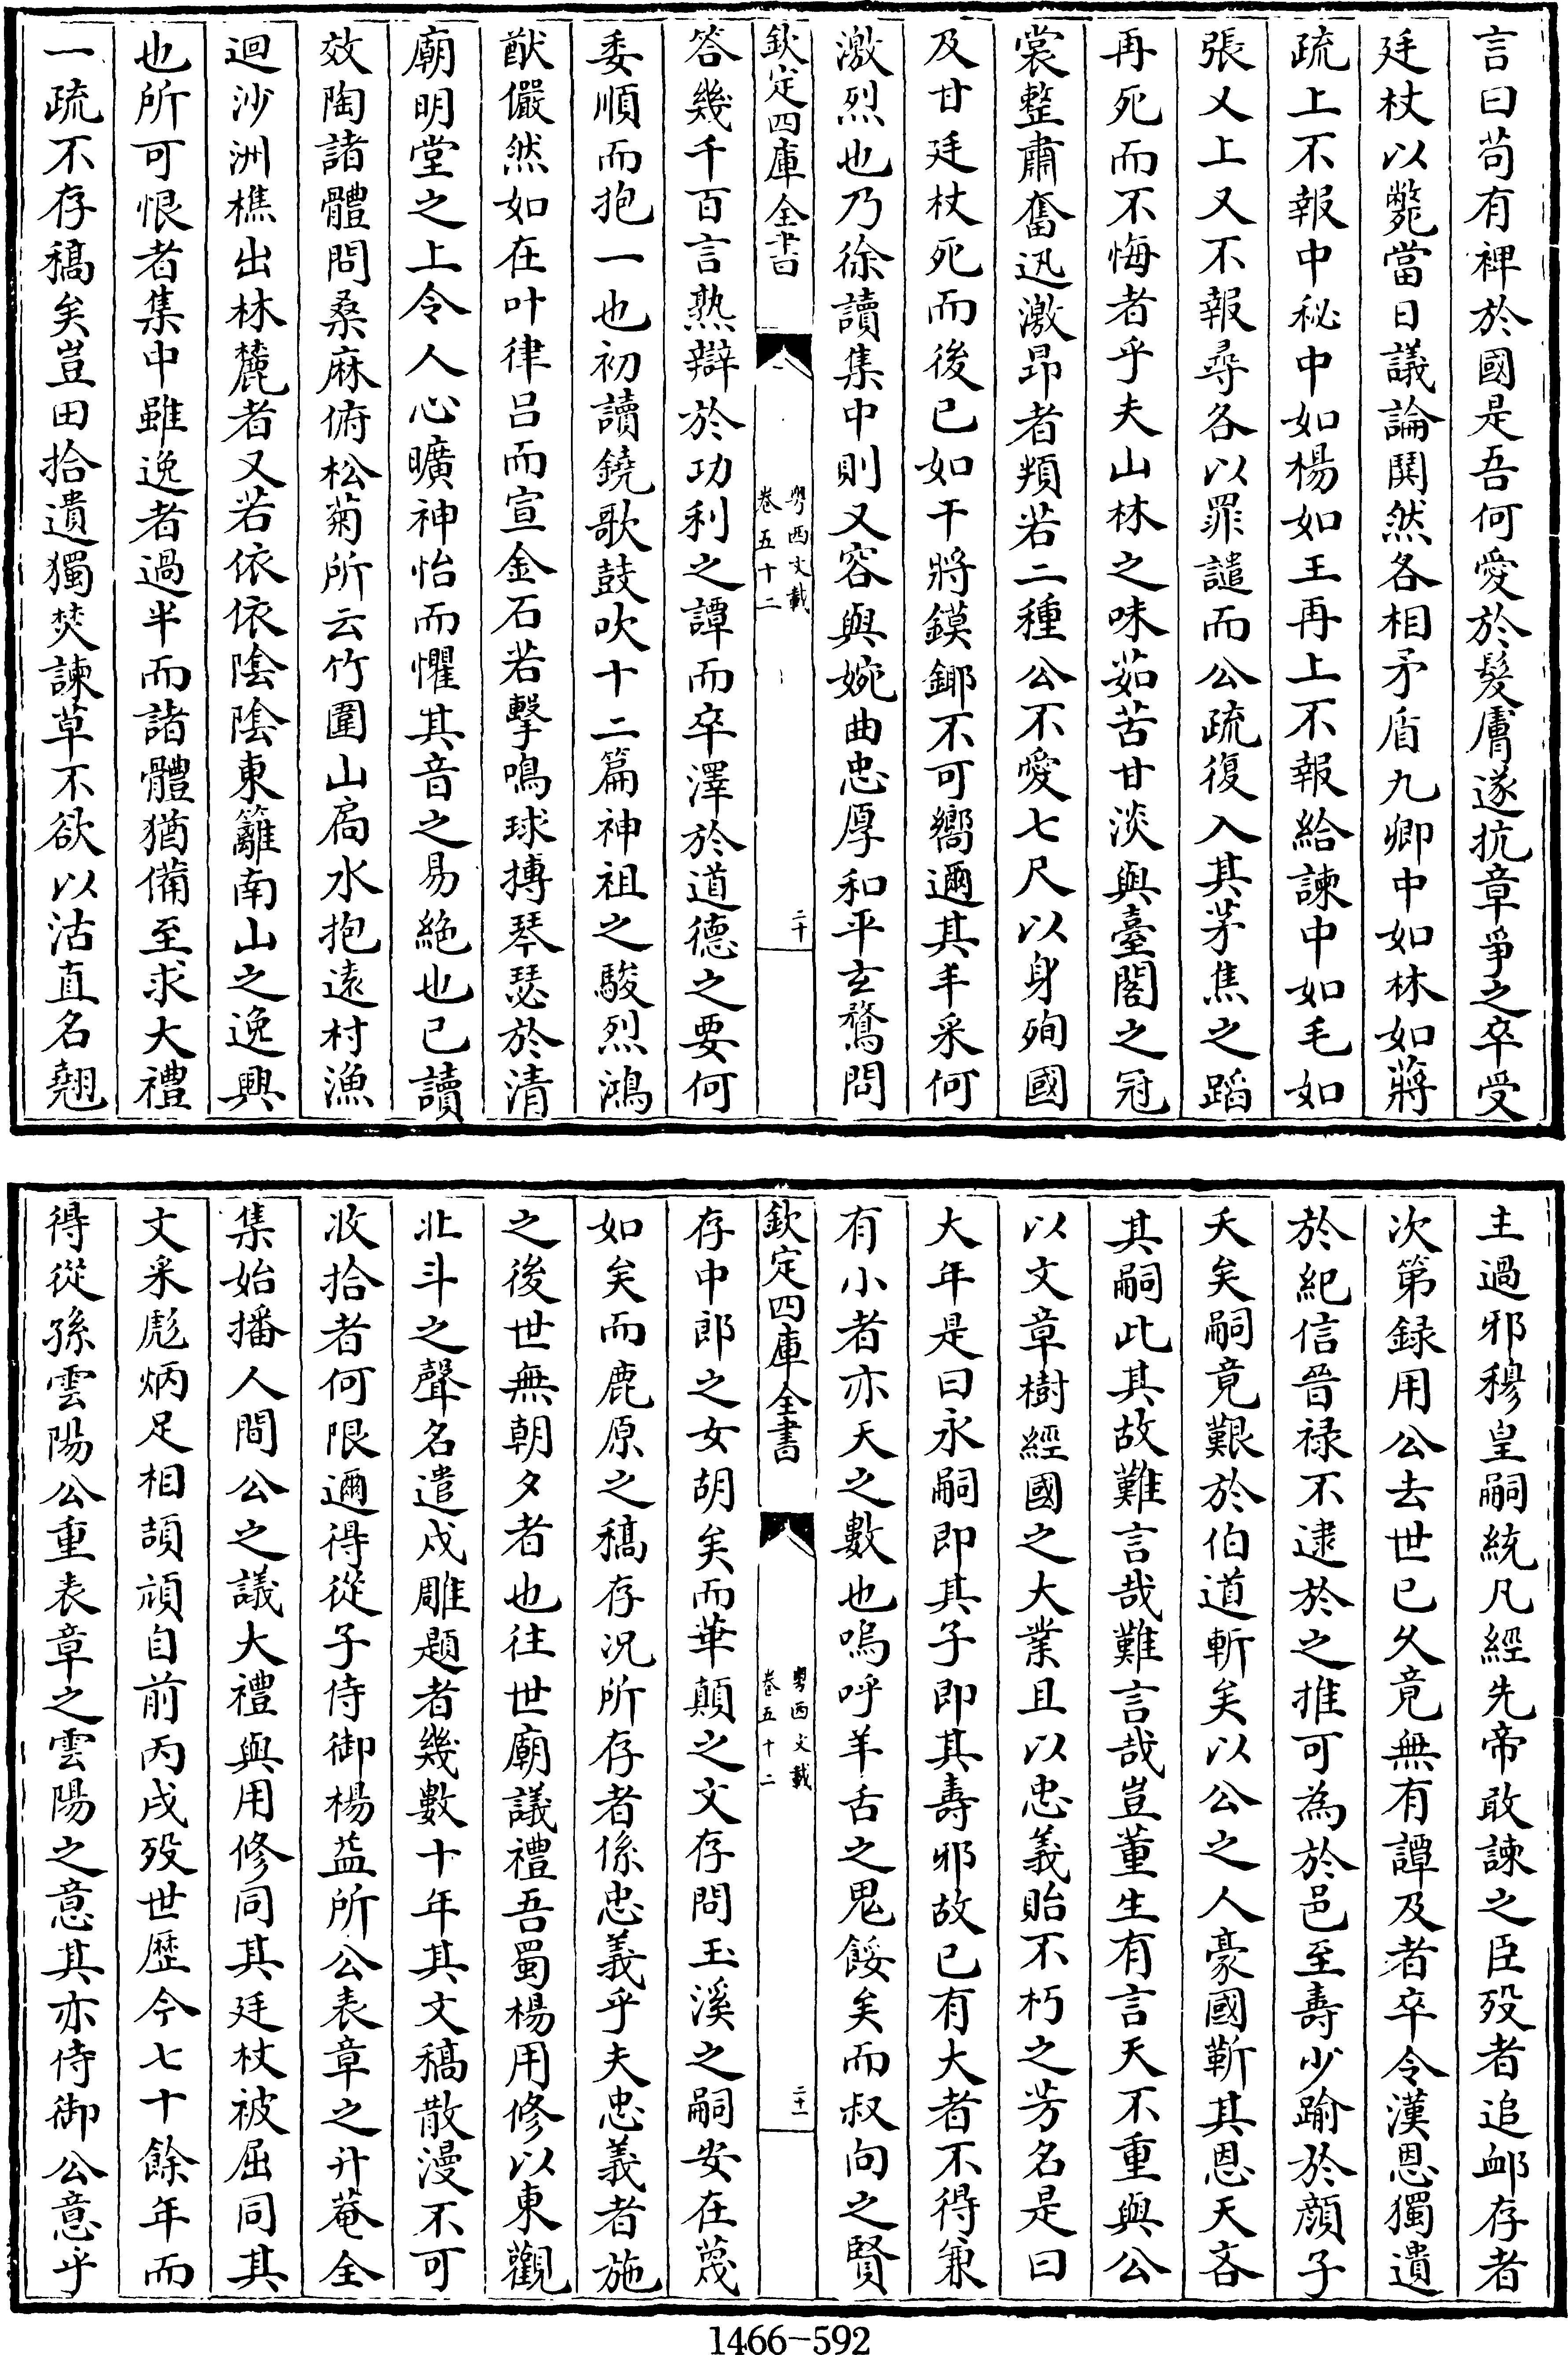 言曰苟有裨於國是吾何愛於髮膚遂抗章爭之卒受
廷杖以斃當日議論鬨然各相矛盾九卿中如林如蔣
疏上不報中秘中如楊如王再上不報給諫中如毛如
張乂上又不報尋各以罪譴而公疏復入其茅焦之蹈
再死而不悔者乎夫山林之味茹苦甘淡與臺閣之冠
裳整肅奮迅激昂者頫若二種公不愛七尺以身殉國
及甘廷杖死而後已如干將鏌鎁不可嚮邇其丰采何
激烈也乃徐讀集中則又容與婉曲忠厚和平玄鶩問
欽定四庫全書
粵西文載
卷五十二
二十
答幾千百言熟辯於功利之譚而卒澤於道德之要何
委順而抱一也初讀鐃歌鼓吹十二篇神祖之駿烈鴻
猷儼然如在叶律呂而宣金石若擊鳴球搏琴瑟於清
廟明堂之上令人心曠神怡而懼其音之易絕也已讀
效陶諸體問桑麻俯松菊所云竹圍山扄水抱遠村漁
迴沙洲樵出林麓者又若依依陰陰東籬南山之逸興
也所可恨者集中雖逸者過半而諸體猶備至求大禮
一疏不存稿矣豈田拾遺獨焚諫草不欲以沽直名翹
主過邪穆皇嗣統凡經先帝敢諫之臣歿者追䘏存者
次第録用公去世已久竟無有譚及者卒令漢恩獨遺
於紀信晉祿不逮於之推可為於邑至壽少踰於顔子
夭矣嗣竟艱於伯道斬矣以公之人豪國靳其恩天吝
其嗣此其故難言哉難言哉豈董生有言天不重與公
以文章樹經國之大業且以忠義貽不朽之芳名是曰
大年是曰永嗣即其子即其壽邪故已有大者不得兼
有小者亦天之數也嗚呼羊舌之鬼餒矣而叔向之賢
欽定四庫全書
粵西文載
卷五十二
二十一
存中郎之女胡矣而華顛之文存問玉溪之嗣安在蔑
如矣而鹿原之稿存況所存者係忠義乎夫忠義者施
之後世無朝夕者也往世廟議禮吾蜀楊用修以東觀
北斗之聲名遣戍雕題者幾數十年其文稿散漫不可
收拾者何限邇得從子侍御楊益所公表章之升菴全
集始播人間公之議大禮與用修同其廷杖被屈同其
文采彪炳足相頡頏自前丙戌歿世歷今七十餘年而
得從孫雲陽公重表章之雲陽之意其亦侍御公意乎
1466-592